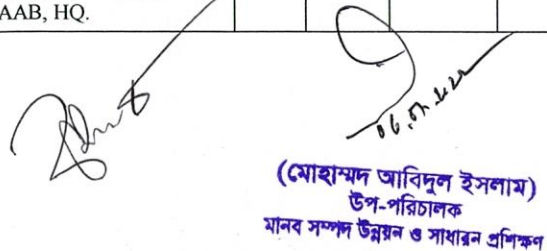 AAB, HQ.
(মোহাম্মদ আবিদুল ইসলাম)
উপ-পরিচালক
মানব সম্পদ উন্নয়ন ও সাধারন প্রশিক্ষণ